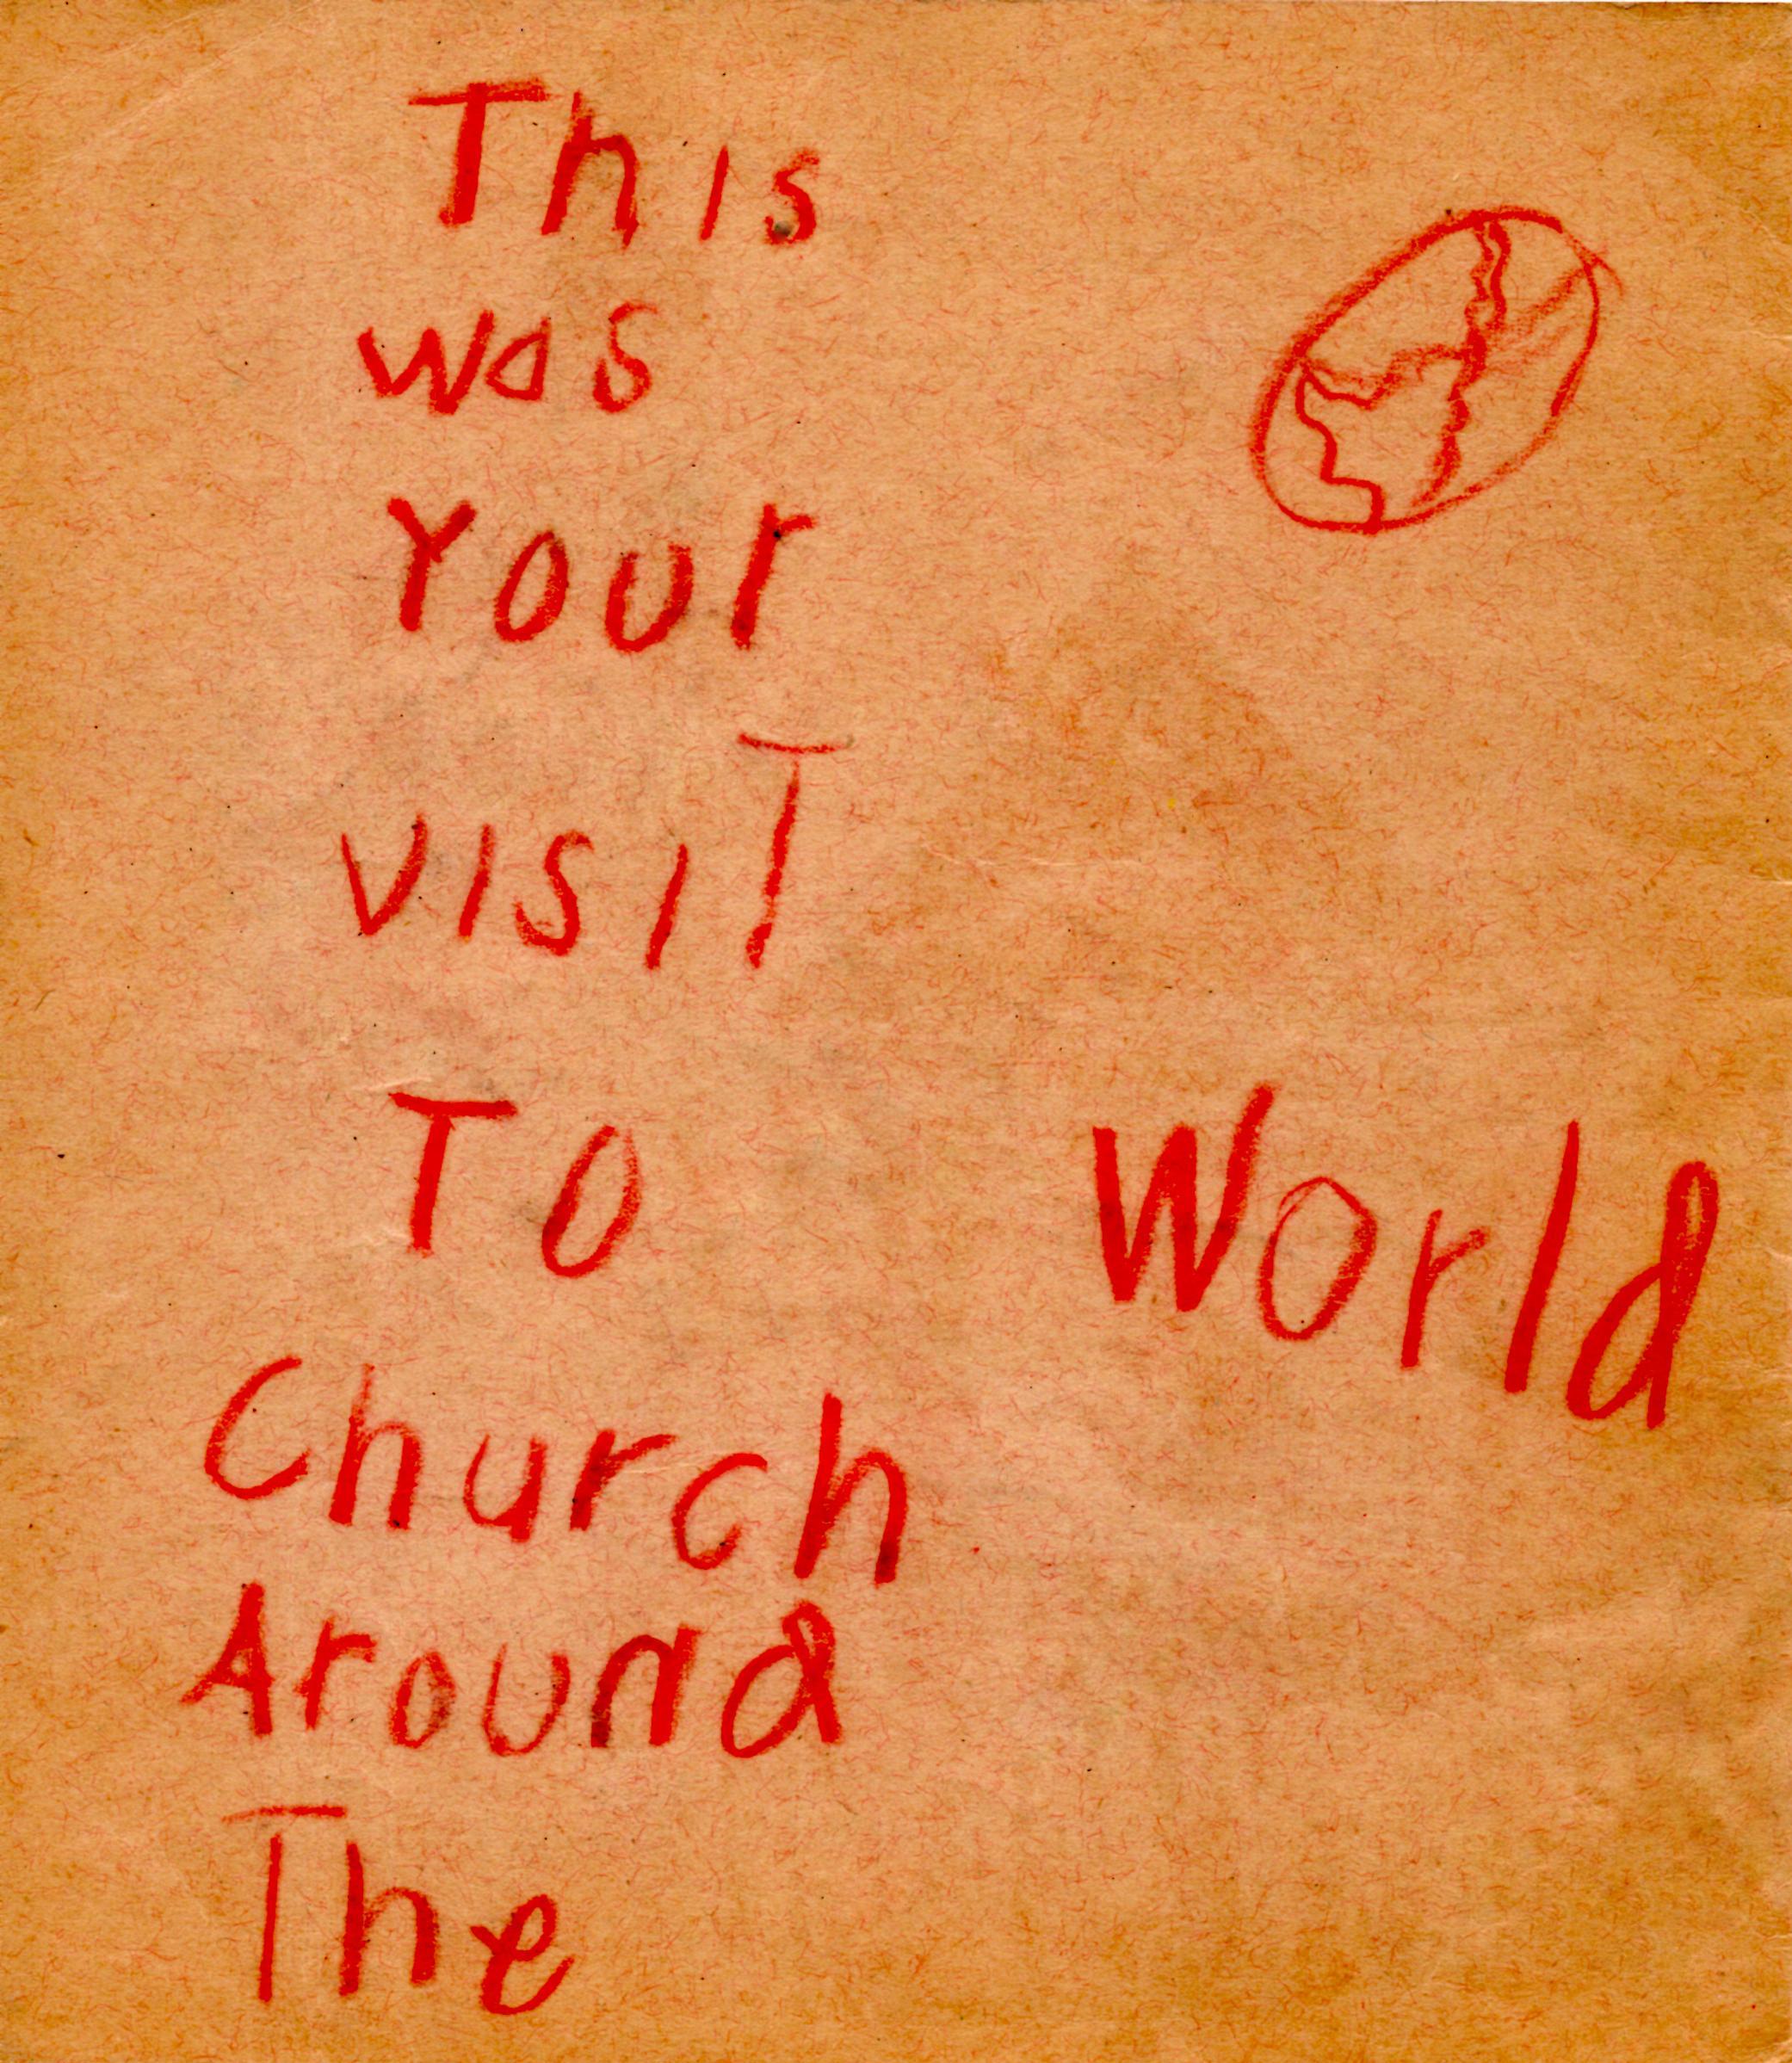 This
was
Your
visiT
TO
Church
Around
The
World